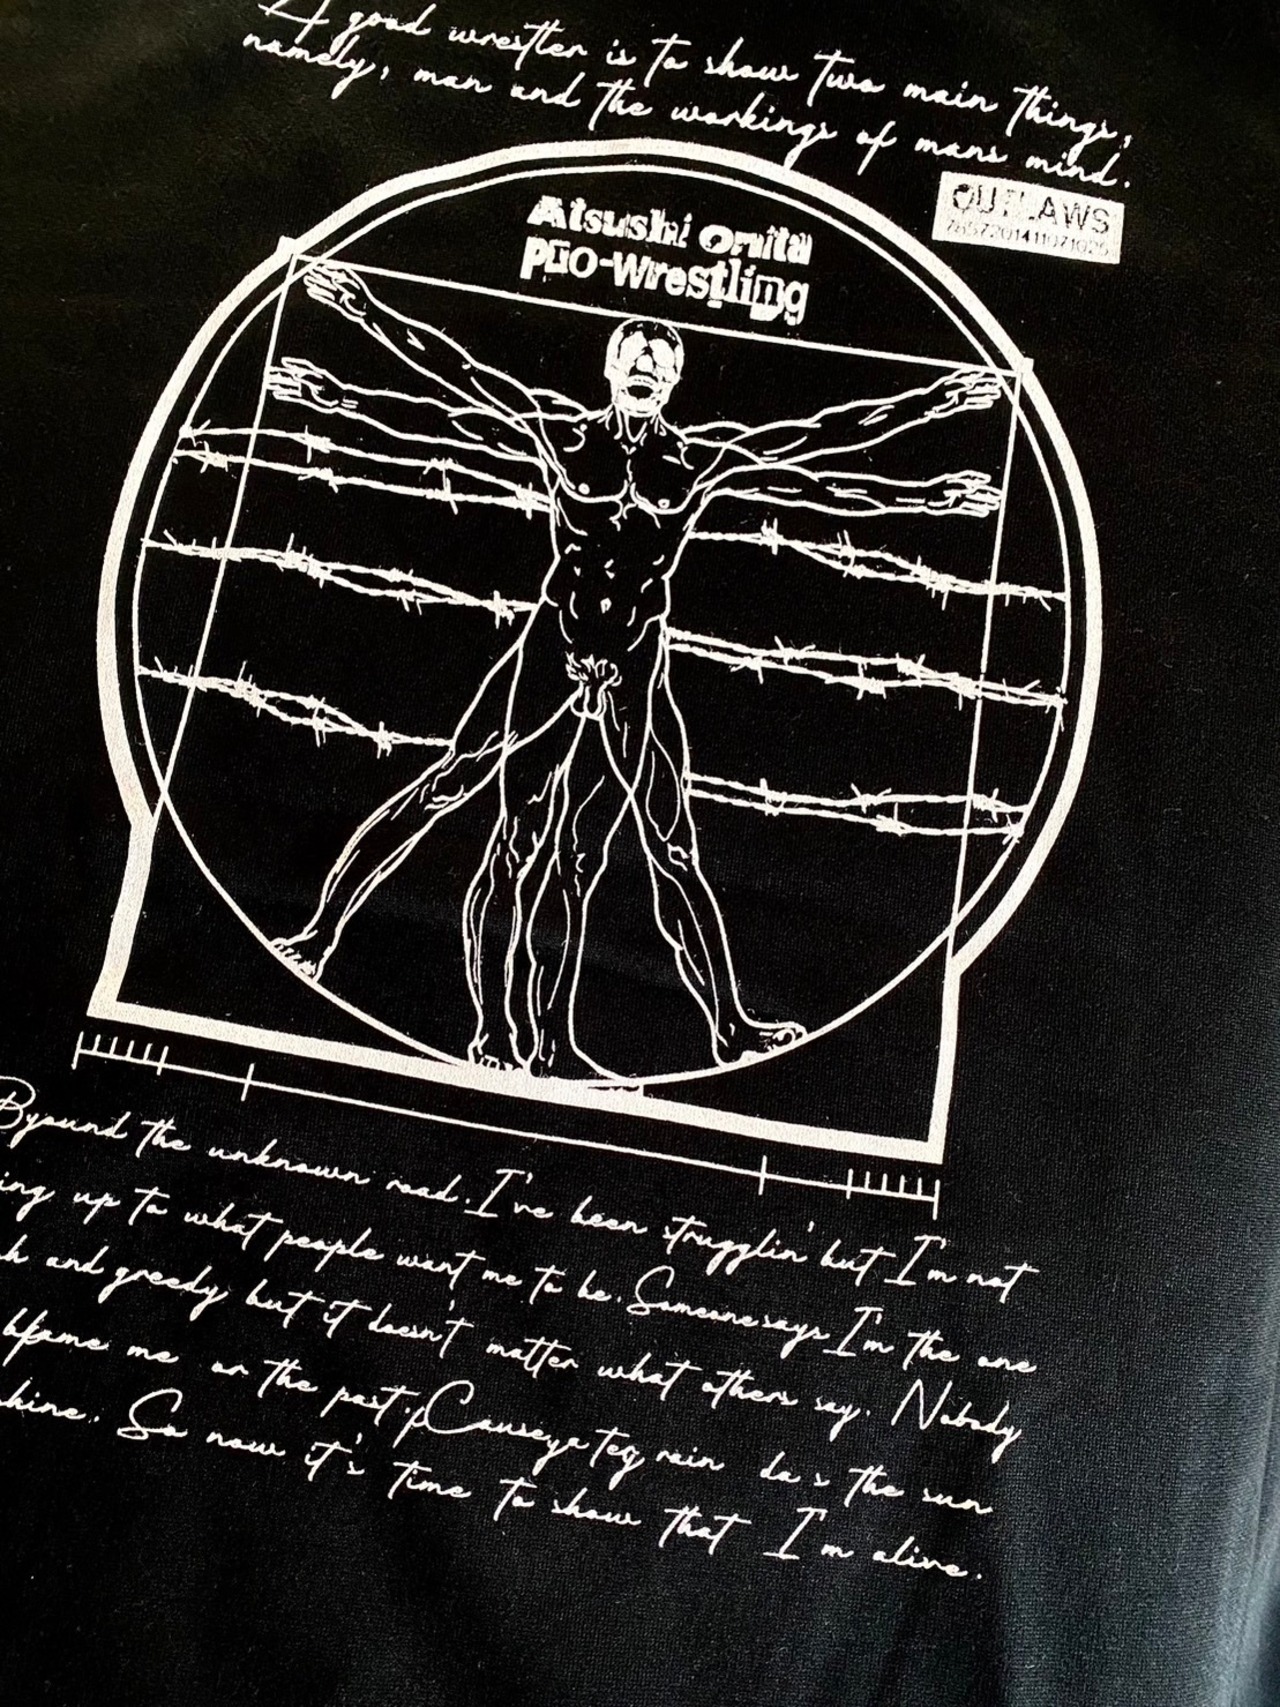 A good wrestler is to show two main things,
namely, man and the workings of mans mind.
OUTLAWS
Atsushi Onita
Pro-Wrestling
Byound the unknown road. I've been strugglin' but I'm not
ing up to what people want me to be. Someone says I'm the one
h and greedy but it doesn't matter what others say. Nobody
blame me or the past. Cause rain the sun
hine. So now it's time to show that I'm alive.